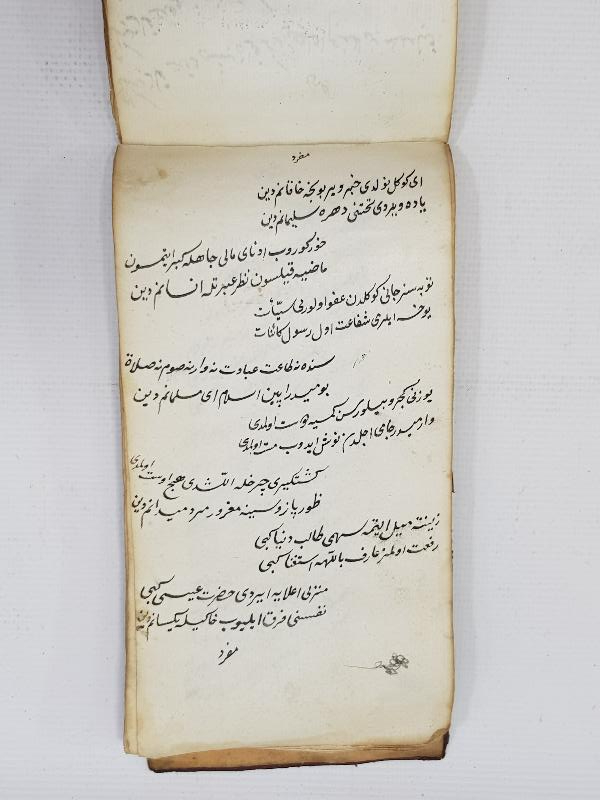 مفرد
ای کوکل نولدی خبر ویر بو یجه خاقانم دین
یاده ویردی تختنی دهره سلیمانم دین
خور کوروب اونای مالی جاهله کبر ایتمسون
ماضیه قیلسون نظر عبرتله انسانم دین
توبه سز جانی کوکلدن عفو اولورمی سیّئات
یوخسه ایلرمی شفاعت اول رسول کائنات
سنده نه طاعت عبادت نه وار نه صوم نه صلاة
بومیدر ایین اسلام ای مسلمانم دین
یوزنی کجر و سن کمسیه دوست اولدی
وارمیدر جامی اجلدن نوش ایدوب مست اولمدی
چرخله اللشدی هیچ اوست اولمدی
ظور بازوسینه مغرور مرد میدانم دین
زینته میل ایتمه سهی طالب دنیا کبی
رفعت اولمز عارف باللهه استغنا کبی
منزلی اعلایه ایردی حضرت عیسی کبی
نفسنی فرق ایلیوب خاکیله یکسانم دین
مفرد